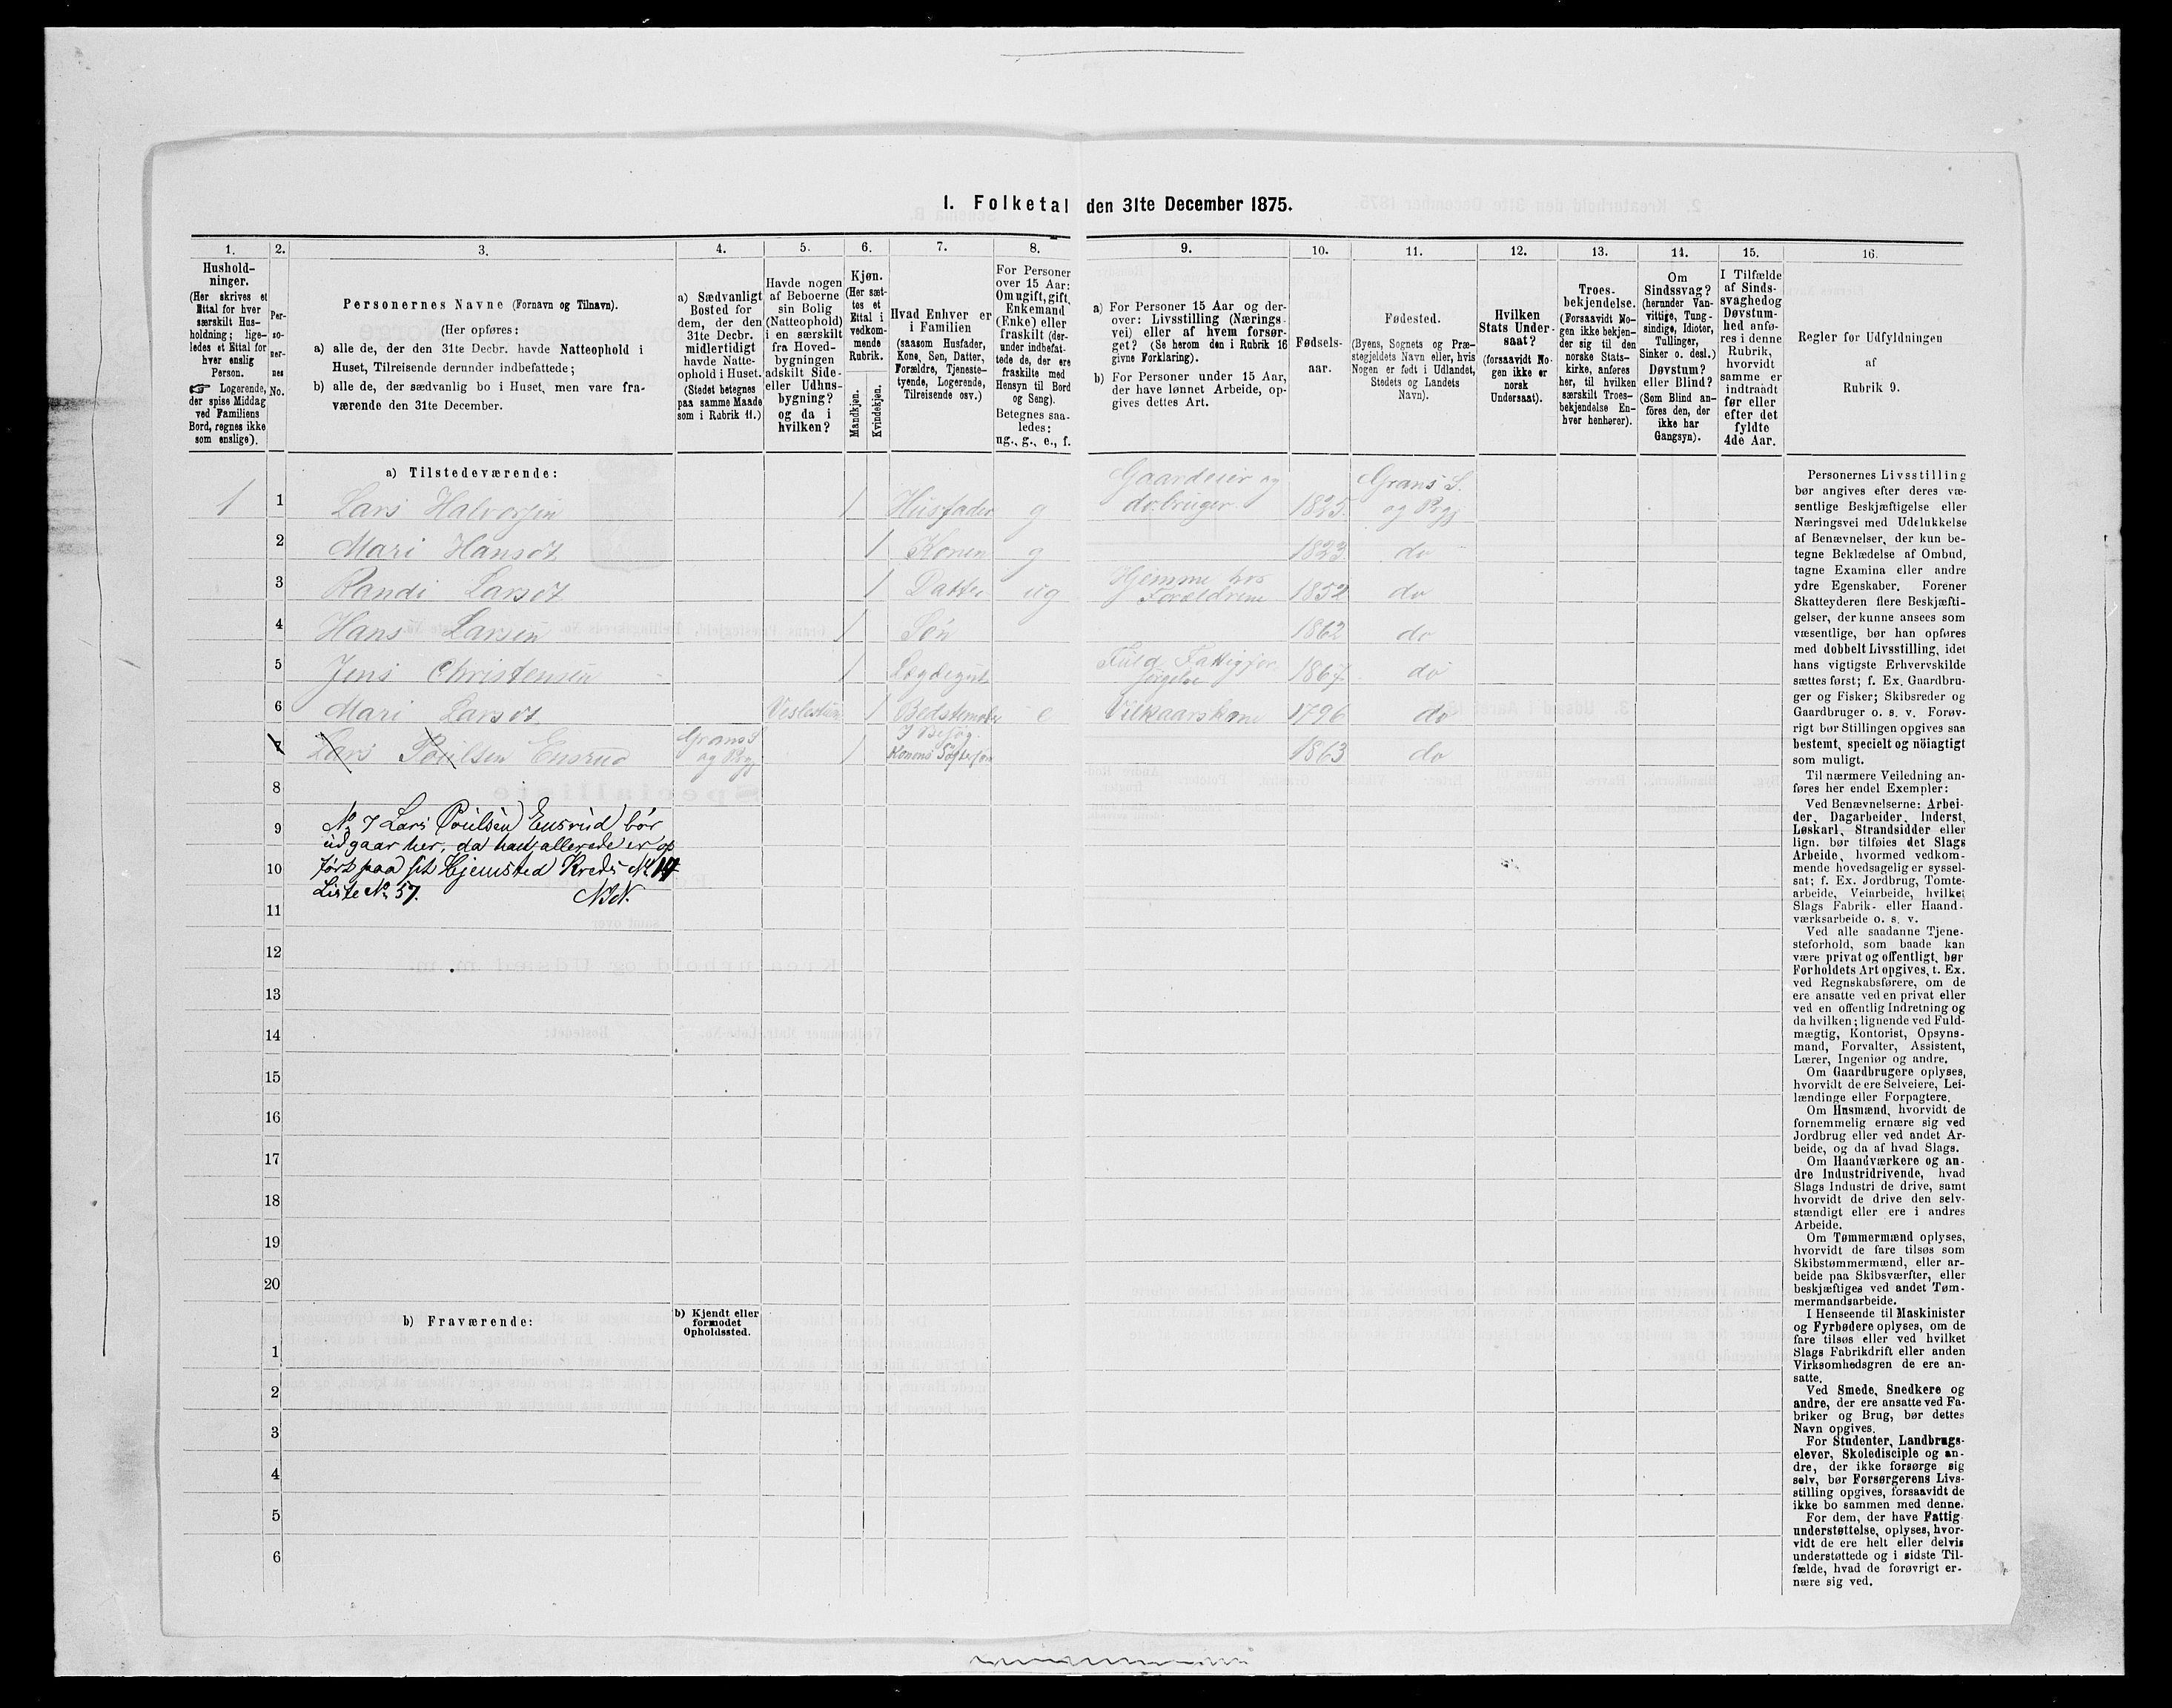 I. Folketal den 31te December 1875.
1. 2. 3. 4. 5. 6. 7. 8. 9. 10. 11. 12. 13. 14. 15. 16.
Hushold-
ninger.
(Her skrives et
Ettal for hver
særskilt Hus-
holdning; lige-
ledes et Ettal for
hver enslig
Person.
☞ Logerende,
der spise Middag
ved Familiens
Bord, regnes ikke
som enslige).
Per-
so-
ner-
nes
No.
Personernes Navne (Fornavn og Tilnavn).
(Her opføres:
a) alle de, der den 31te Decbr. havde Natteophold i
Huset, Tilreisende derunder indbefattede;
b) alle de, der sædvanlig bo i Huset, men vare fra-
værende den 31te December.
a) Sædvanligt
Bosted for
dem, der den
31te Decbr.
midlertidigt
havde Natte-
ophold i Huset.
(Stedet betegnes
paa samme Maade
som i Rubrik 11.)
Havde nogen
af Beboerne
sin Bolig
(Natteophold)
i en særskilt
fra Hoved-
bygningen
adskilt Side-
eller Udhus-
bygning?
og da i
hvilken?
Kjøn.
(Her sæt-
tes et
Ettal i
vedkom-
mende
Rubrik.
Mandkjøn.
Kvindekjøn.
Hvad Enhver er
i Familien
(saasom Husfader,
Kone, Søn, Datter,
Forældre, Tjeneste-
tyende, Logerende,
Tilreisende osv.)
For Personer
over 15 Aar:
Om ugift, gift,
Enkemand
(Enke) eller
fraskilt (der-
under indbefat-
tede de, der ere
fraskilte med
Hensyn til Bord
og Seng).
Betegnes saa-
ledes:
ug., g., e., f.
a) For Personer 15 Aar og der-
over: Livsstilling (Nærings-
vei) eller af hvem forsør-
get? (Se herom den i Rubrik 16
givne Forklaring).
b) For Personer under 15 Aar,
der have lønnet Arbeide, op-
gives dettes Art.
Fødsels-
aar.
Fødested.
(Byens, Sognets og Præ-
stegjeldets Navn eller, hvis
Nogen er født i Udlandet,
Stedets og Landets
Navn).
Hvilken
Stats Under-
saat?
(forsaavidt No-
gen ikke er
norsk
Undersaat).
Troes-
bekjendelse.
(Forsaavidt No-
gen ikke bekjen-
der sig til den
norske Stats-
kirke, anføres
her, til hvilken
særskilt Troes-
bekjendelse En-
hver henhører).
Om
Sindssvag?
(herunder Van-
vittige, Tung-
sindige, Idioter,
Tullinger,
Sinker o. desl.)
Døvstum?
eller Blind?
(Som Blind an-
føres den, der
ikke har
Gangsyn).
I Tilfælde
af Sinds-
svaghedog
Døvstum-
hed anfø-
res i denne
Rubrik,
hvorvidt
samme er
indtraadt
før eller
efter det
fyldte
4de Aar.
Regler for Udfyldningen
af
Rubrik 9.
a) Tilstedeværende:
1 1 Lars Halvorsen 1 Husfader g Gaardeier og do bruger 1825 Grans S. og Pgj
2 Mari Hansdt 1 Konen g 1823 do
3 Randi Larsdt 1 Datter ug Hjemme hos Forældrene 1852 do
4 Hans Larsen 1 Søn 1862 do
5 Jens Christensen 1 Lægdegut Fuld Fattigforsørgelse 1867 do
6 Mari Larsdt Veslestue 1 Bedstemoder e Vilkaarskone 1796 do
7 Lars Poulsen Ensrud Grans S og Pgj 1 I Besøg. Konens Søstersøn 1863 do
8
9 No 7 Lars Poulsen Ensrud bør
udgaar her, da han allerede er op
10 ført paa sit Hjemsted Kreds No 14
Liste No 57.
11
12
13
14
15
16
17
18
19
20
b) Fraværende:
b) Kjendt eller
formodet
Opholdssted.
1
2
3
4
5
6
Personernes Livsstilling
bør angives efter deres væ-
sentlige Beskjæftigelse eller
Næringsvei med Udelukkelse
af Benævnelser, der kun be-
tegne Beklædelse af Ombud,
tagne Examina eller andre
ydre Egenskaber. Forener
Skatteyderen flere Beskjæfti-
gelser, der kunne ansees som
væsentlige, bør han opføres
med dobbelt Livsstilling, idet
hans vigtigste Erhvervskilde
sættes først; f. Ex. Gaardbru-
ger og Fisker; Skibsreder og
Gaardbruger o. s. v. Forøv-
rigt bør Stillingen opgives saa
bestemt, specielt og nöiagtigt
som muligt.
Til nærmere Veiledning an-
føres her endel Exempler:
Ved Benævnelserne: Arbei-
der, Dagarbeider, Inderst,
Løskarl, Strandsidder eller
lign. bør tilføies det Slags
Arbeide, hvormed vedkom-
mende hovedsagelig er syssel-
sat; f. Ex. Jordbrug, Tomte-
arbeide, Veiarbeide, hvilket
Slags Fabrik- eller Haand-
værksarbeide o. s. v.
Ved alle saadanne Tjene-
steforhold, som baade kan
være privat og offentligt, bør
Forholdets Art opgives, t. Ex.
ved Regnskabsførere, om de
ere ansatte ved en privat eller
ved en offentlig Indretning og
da hvilken; lignende ved Fuld-
mægtig, Kontorist, Opsyns-
mand, Forvalter, Assistent,
Lærer, Ingeniør og andre.
Om Gaardbrugere oplyses,
hvorvidt de ere Selveiere, Lei-
lændinge eller Forpagtere.
Om Husmænd, hvorvidt de
fornemmelig ernære sig ved
Jordbrug eller ved andet Ar-
beide, og da af hvad Slags.
Om Haandværkere og an-
dre Industridrivende, hvad
Slags Industri de drive, samt
hvorvidt de drive den selv-
stændigt eller ere i andres
Arbeide.
Om Tømmermænd oplyses,
hvorvidt de fare tilsøs som
Skibstømmermænd, eller ar-
beide paa Skibsværfter, eller
beskjæftiges ved andet Tøm-
mermandsarbeide.
I Henseende til Maskinister
og Fyrbødere oplyses, om de
fare tilsøs eller ved hvilket
Slags Fabrikdrift eller anden
Virksomhedsgren de ere an-
satte.
Ved Smede, Snedkere og
andre, der ere ansatte ved Fa-
briker og Brug, bør dettes
Navn opgives.
For Studenter, Landbrugs-
elever, Skoledisciple og an-
dre, der ikke forsørge sig
selv, bør Forsørgerens Livs-
stilling opgives, forsaavidt de
ikke bo sammen med denne.
For dem, der have Fattig-
understøttelse, oplyses, hvor-
vidt de ere helt eller delvis
understøttede og i sidste Til-
fælde, hvad de forøvrigt er-
nære sig ved.